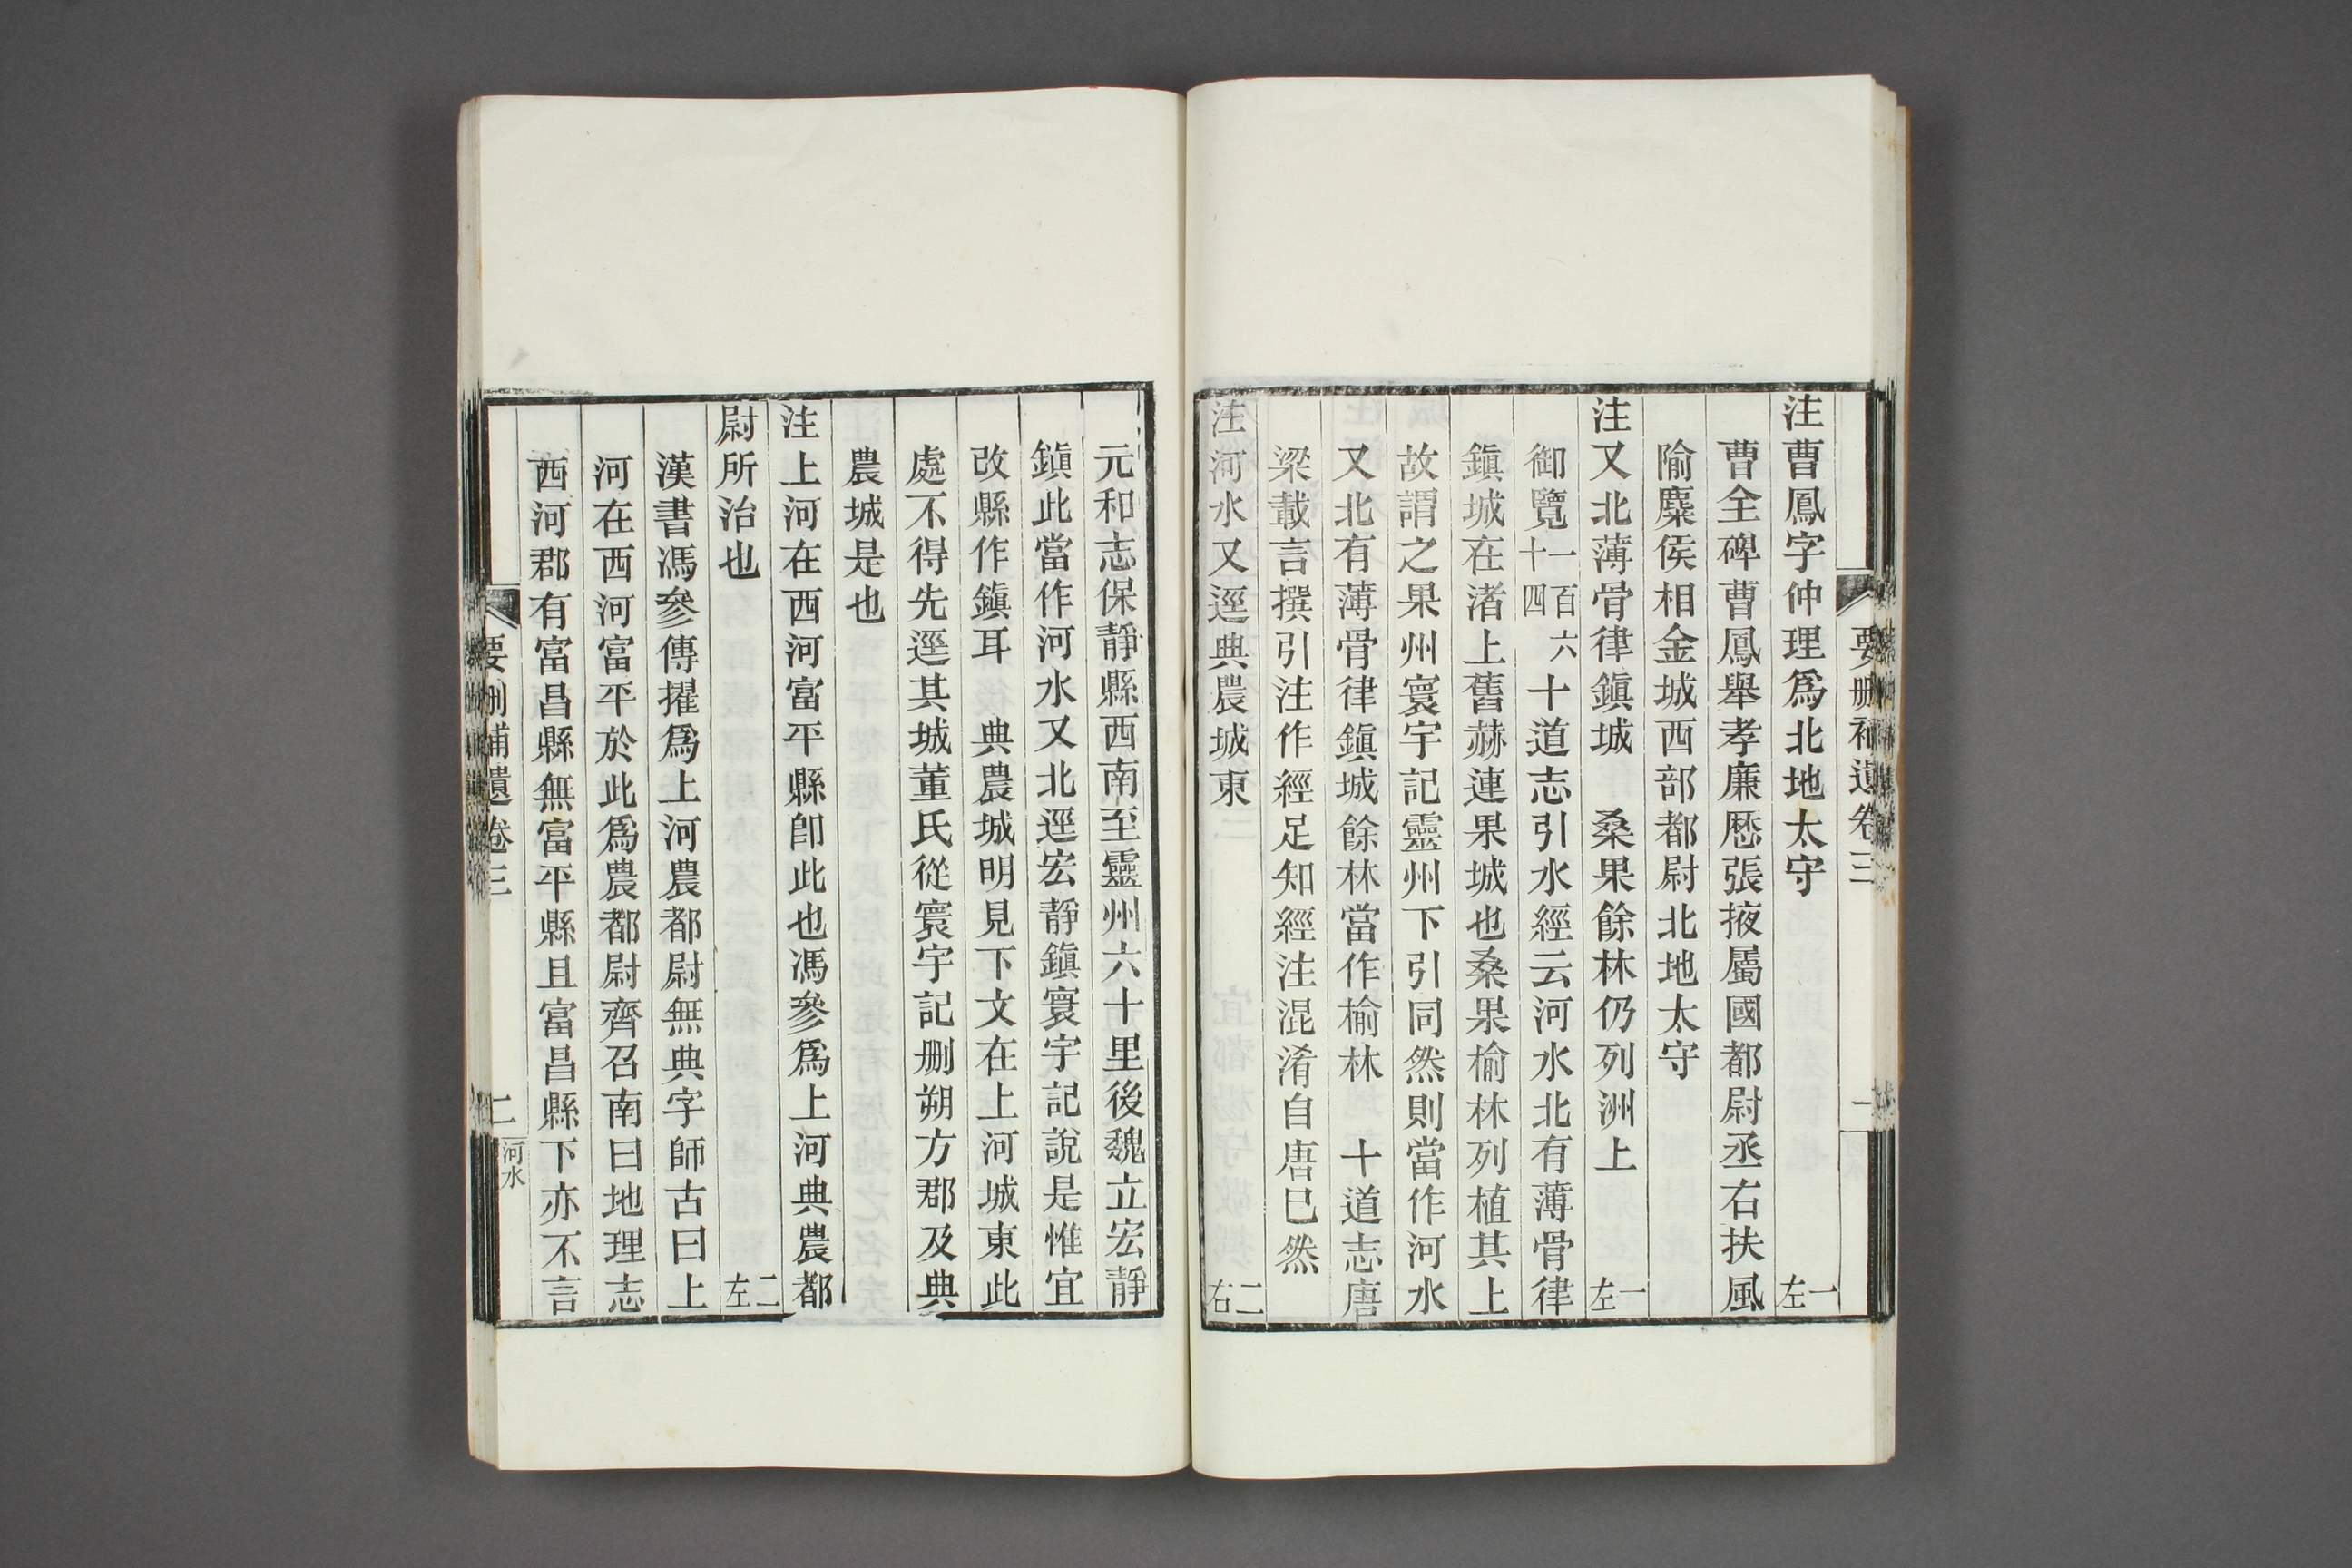 要删補遺卷三
一
注曹鳳字仲理爲北地太守 一左
曹全碑曹鳳舉孝廉歴張掖屬國都尉丞右扶風
隃麋侯相金城西部都尉北地太守
注又北薄骨律鎭城 桑果餘林仍列洲上 一左
御覽一百六十四 十道志引水經云河水北有薄骨律
鎭城在渚上舊赫連果城也桑果榆林列植其上
故謂之果州寰宇記靈州下引同然則當作河水
又北有薄骨律鎭城餘林當作榆林 十道志唐
梁載言撰引注作經足知經注混淆自唐巳然
注河水又逕典農城東 二右
元和志保靜縣西南至靈州六十里後魏立宏靜
鎭此當作河水又北逕宏靜鎭寰宇記説是惟宜
改縣作鎭耳 典農城明見下文在上河城東此
處不得先逕其城董氏從寰宇記删朔方郡及典
農城是也
注上河在西河富平縣卽此也馮參爲上河典農都
尉所治也 二左
漢書馮參傳擢爲上河農都尉無典字師古曰上
河在西河富平於此爲農都尉齊召南曰地理志
西河郡有富昌縣無富平縣且富昌縣下亦不言
要删補遺卷三
二
河水